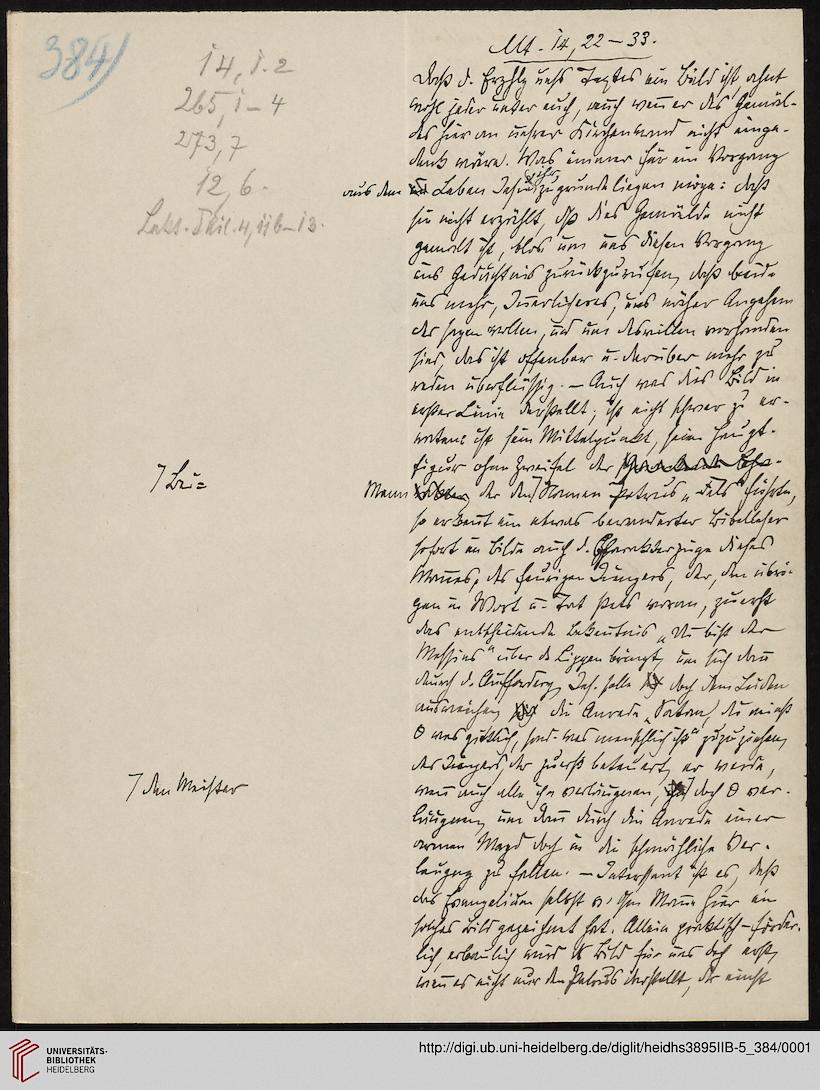 384)
14, 1. 2
265, 1 – 4
273, 7
12, 6.
Lekt. Phil. 4, 11b–13.
Mt. 14, 22 – 33.
Daß d. Erzhlg unsres Textes ein Bild ist, ahnt
wohl jeder unter euch, auch wenn er des Gemäl-
des hier an unsrer Kirchenwand nicht einge-
denk wäre. Was immer für ein Vorgang
aus dem Leben Jesu ihr zugrunde liegen möge: daß
sie nicht erzählt, daß dies Gemälde nicht
gemalt ist, blos um uns diesen Vorgang
ins Gedächtnis zurückzurufen, daß beide
uns mehr, Innerlicheres, uns näher Angehen
des sagen wollen, und um deswillen vorhanden
sind, das ist offenbar u. darüber mehr zu
reden überflüssig. – Auch was dies Bild in
erster Linie darstellt, ist nicht schwer zu er-
raten: ist sein Mittelpunkt, seine Haupt-
figur ohne Zweifel der
Mann der den Namen Petrus „Fels" führte,
so erkennt ein etwas bewanderter Bibelleser
sofort im Bilde auch d. Charakterzüge dieses
Mannes, des feurigen Jüngers, der, den übri-
gen in Wort u. Tat stets voran, zuerst
das entscheidende Bekenntnis „Du bist der
Messias" über die Lippen bringt, um sich dann
durch d. Aufforderg, Jes. solle doch dem Leiden
ausweichen, die Anrede „Satan, du meinst
0 was göttlich, sond. was menschlich ist" zuzuziehen,
des Jüngers, der zuerst beteuert, er werde,
wenn auch alle ihn verleugneten, doch 0 ver-
leugnen, um dann durch die Anrede einer
armen Magd doch in die schmähliche Ver-
leugng zu fallen. – Interessant ist es, daß
das Evangelium selbst Mann hier ein
solches Bild gezeichnet hat. Allein praktisch-förder-
lich, erbaulich wird das Bild für uns doch erst,
wenn es nicht nur den Petrus darstellt, der einst
7 den Meister
UNIVERSITÄTS-
BIBLIOTHEK
HEIDELBERG
http://digi.ub.uni-heidelberg.de/diglit/heidhs3895IIB-5_384/0001